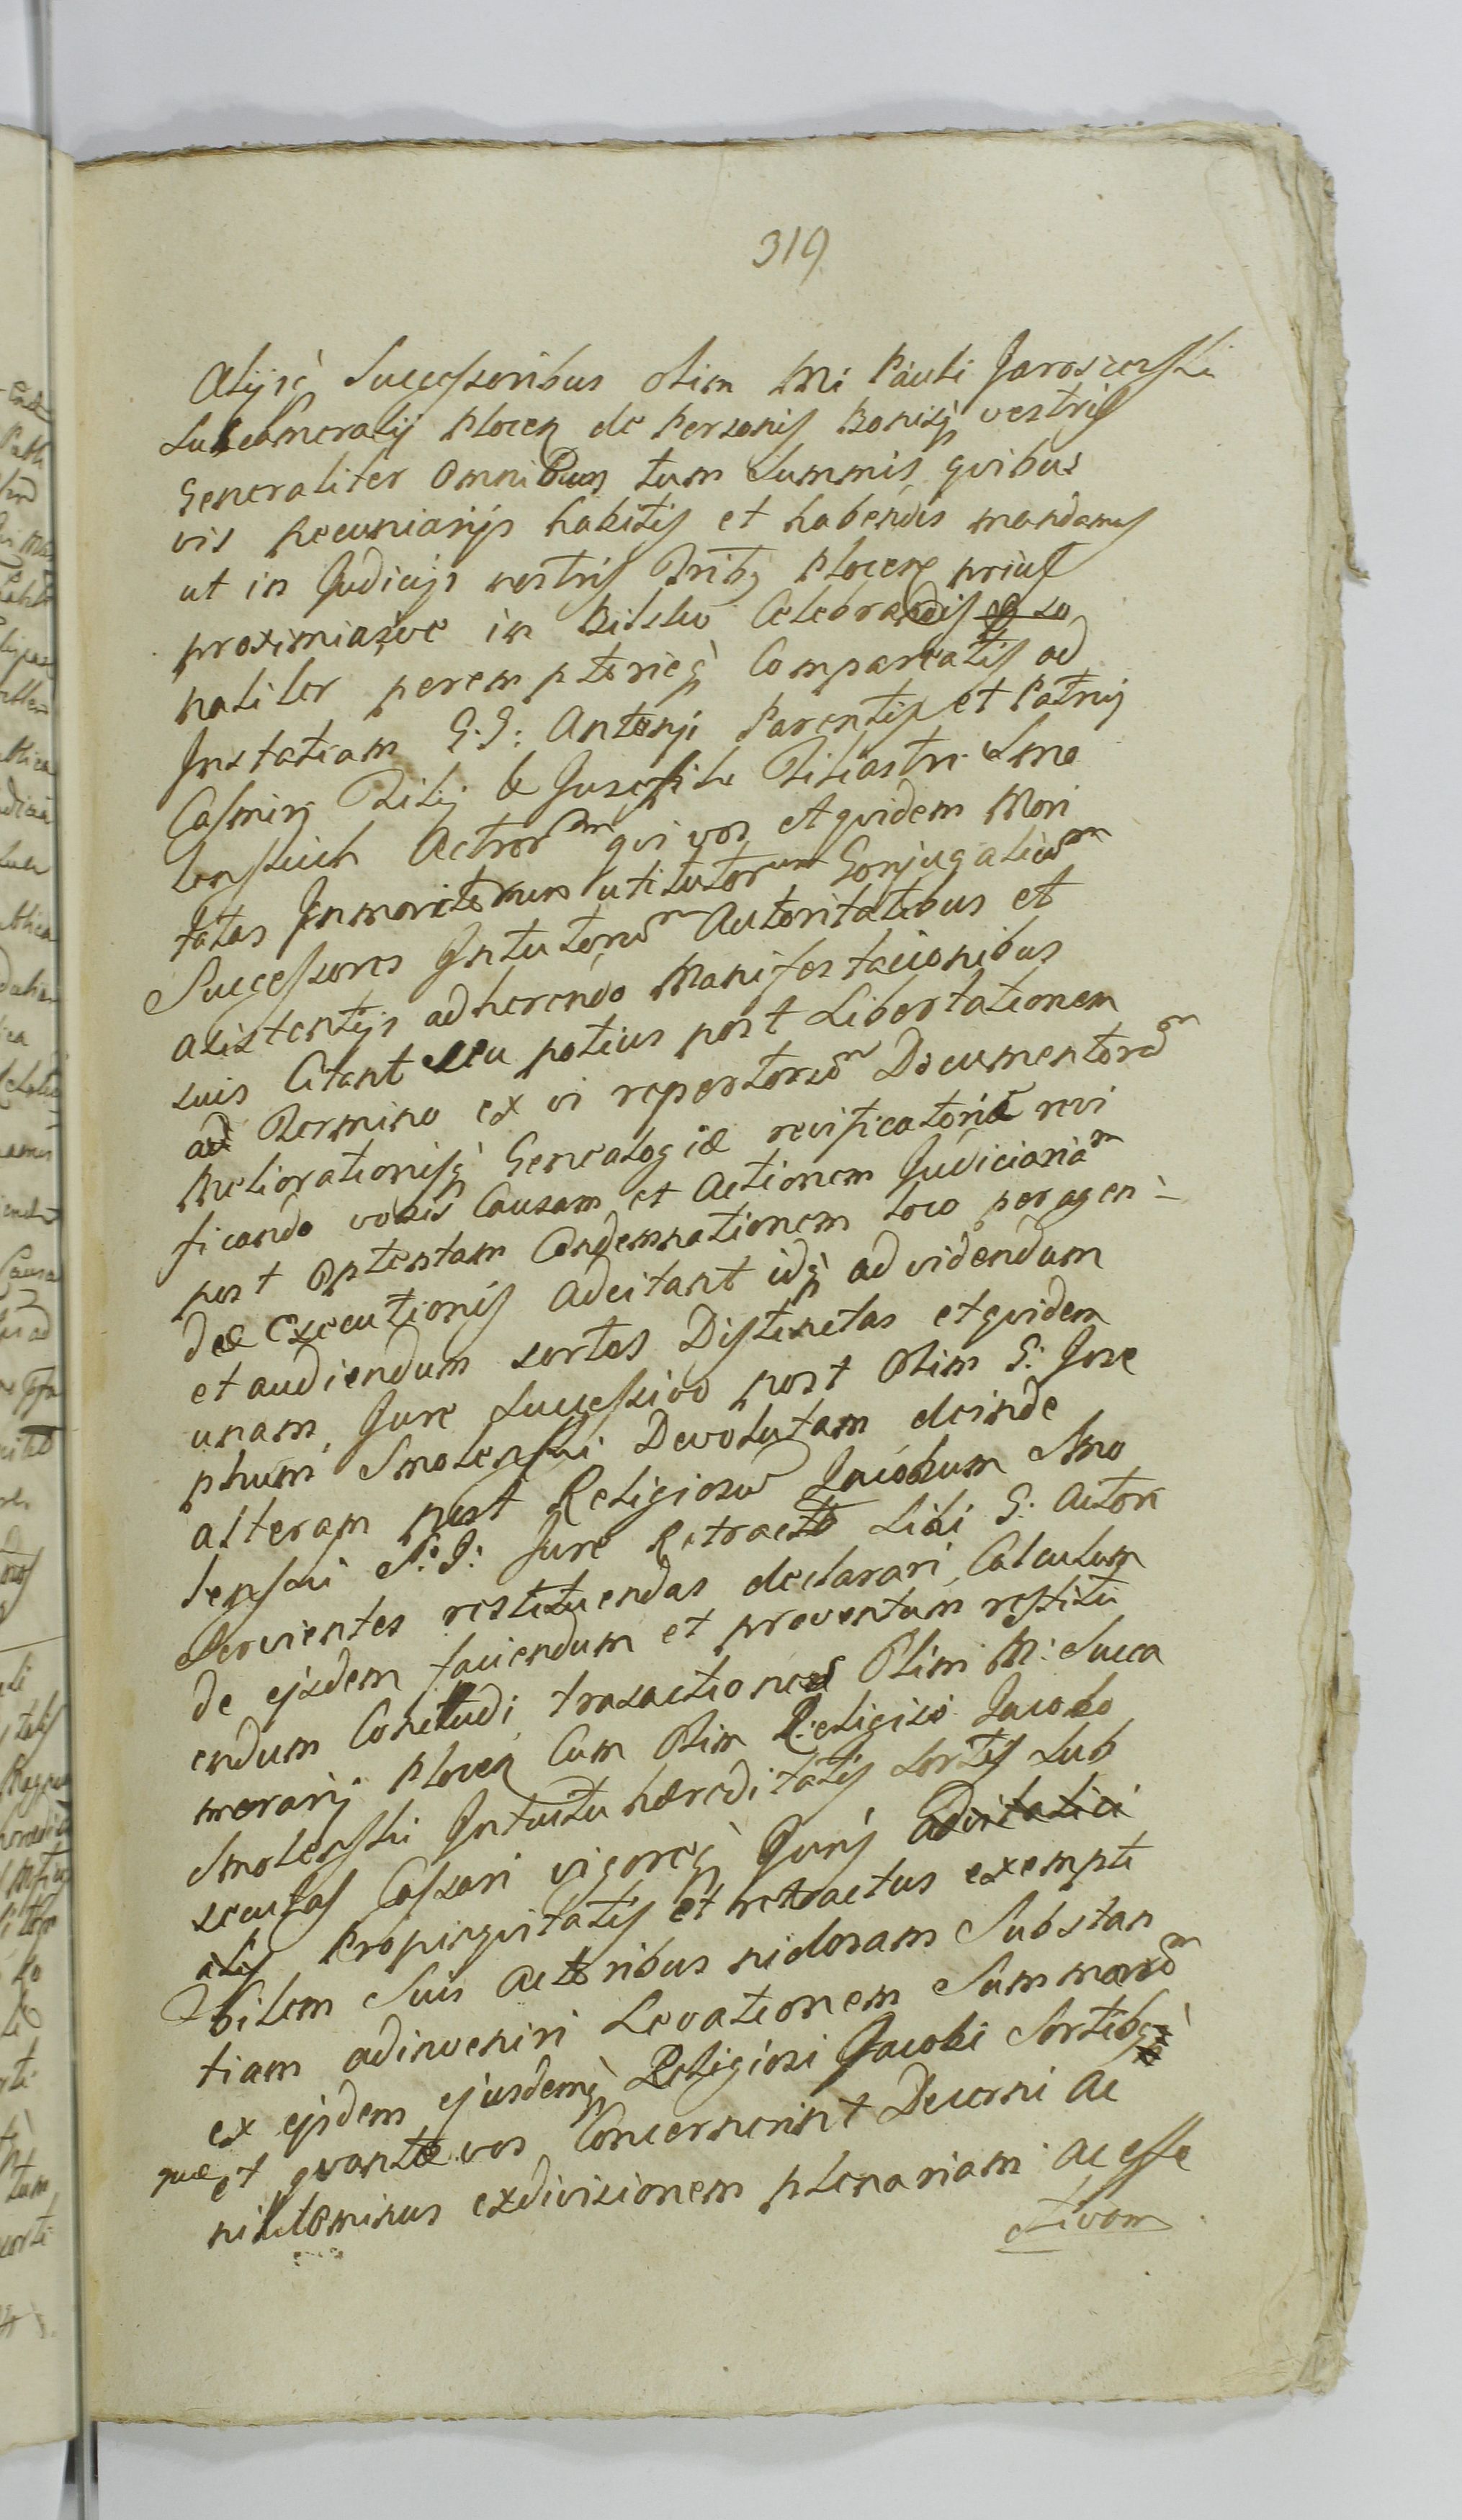 319
Alijsq Successoribus olim Mi Pauli Jaroszewski
Subcamerarij Plocen de Personis Bonisq vestris
Generaliter Omnibusq tum Summis quibus
vis pecuniarijs habitis et habendis mandamus
ut in Judicijs nostris Tritbq Plocen prius
proximiasve in Bielsko Celebrandis
naliter peremptorieq Compareatis ad
Instatiam G.G: Antonij Parentis et Patrij
Casimiri Filij & Josephi Filiastri Smo
lenskich Actrorum qui vos et quidem Mori
tatas Inmoritorum uti tutorum Conjugalium
Successores Intutorum Autoritatibus et
asistentijs adherendo Manifestacionibus
suis Citant seu potius post Libertationem
ad Termino ex vi repertorum Documentorum
Meliorationisq Genealogiæ revificatoriæ revi
ficando vobis Causam et Actionem Judiciariam
post optentam Condemnationem loco peragen-
dæ Executionis adcitant idq ad videndum
et audiendum sortes Distinctas et quidem
unam, Jure Successivo post olim G: Jose
phum Smolenski Devolutam deinde
alteram post Religiosum Jacobum Smo
lenski S:J: Jure Retractu Sibi G: Actori
Servientes restituendas declarari, Calculum
de ejsdem faciendum et proventum restitu
endum Concludi, trasactiones Olim M: Succa
merarij Plocen Cum Olim Religiso Jacobo
Smolenski Intuitu hæreditatis Sortis Sub
secutas Cassari vigoreq Juris advitalici
alis Propinquitatis et retractus exempti
bilem Suis Actoribus nidoram Substan
tiam adinveniri Levationem Summarum
ex ejsdem ejusdemq Religiosi Jacobi Sortibq
quæ et quante vos Concernerint Decerni ac
nihilominus exdivisionem plenariam ac effe
ctivam